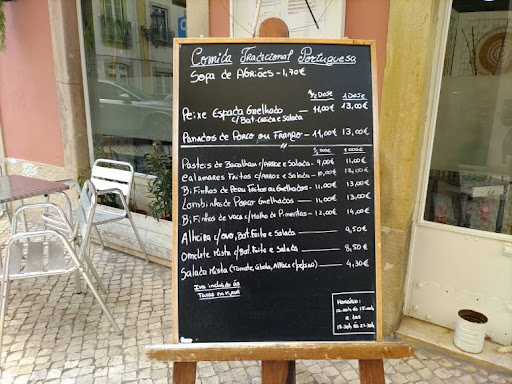 Comida Tradicional Portuguesa
Sopa de Agriões – 1,70€
½ Dose 1 Dose
Peixe Espada Grelhado 11,00€ 13,00€
c/Bat. cozida e salada
Panados de Porco ou Frango – 11,00€ 13,00€
½ Dose 1 Dose
Pasteis de Bacalhau c/Arroz e Salada – 9,00€ 11,00€
Calamares Fritos c/Arroz e Salada – 10,00€ 12,00€
Bifinhos de Peru Fritos ou Grelhados – 11,00€ 13,00€
Lombinhos de Porco Grelhados – 11,00€ 13,00€
Bifinhos de Vaca c/Molho de Pimentas – 12,00€ 14,00€
Alheira c/ovo, Bat. Frita e salada 9,50€
Omelete Mista c/Bat. Frita e salada 8,50€
Salada Mista (Tomate, Cebola, Alface c/pepino) 4,30€
Iva incluido às
Taxas em vigor
Horário:
12.00h às 15.00h
e das
19.30h às 21.30h